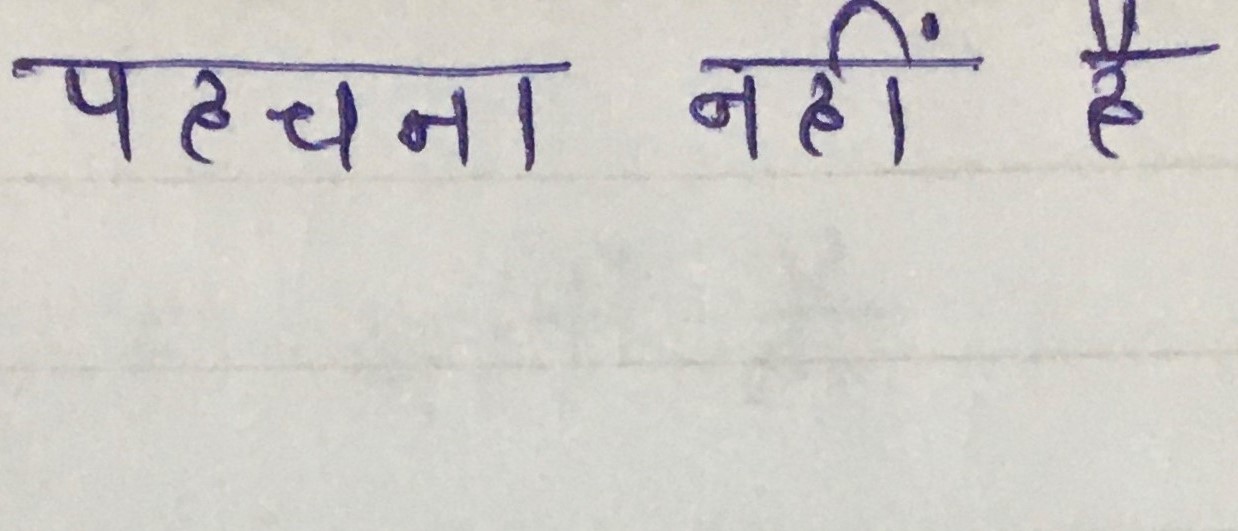 पहचना नहीं है